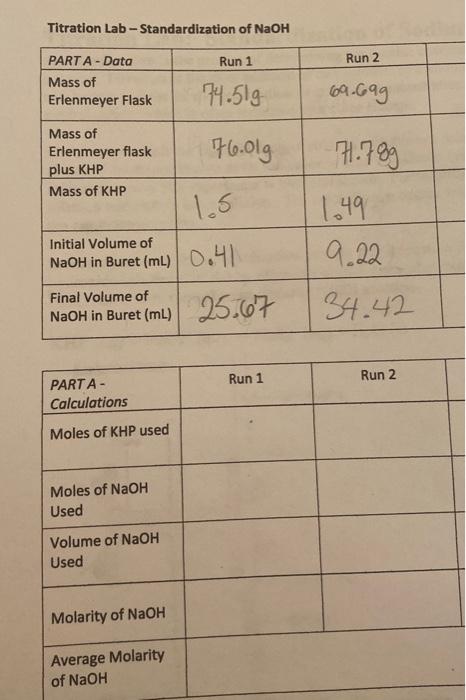 Titration Lab – Standardization of NaOH
PART A - Data Run 1 Run 2
Mass of
Erlenmeyer Flask 74.51g 69.69g
Mass of
Erlenmeyer flask 76.01g 71.78g
plus KHP
Mass of KHP 1.5 1.49
Initial Volume of
NaOH in Buret (mL) 0.41 9.22
Final Volume of
NaOH in Buret (mL) 25.67 34.42
PART A - Run 1 Run 2
Calculations
Moles of KHP used
Moles of NaOH
Used
Volume of NaOH
Used
Molarity of NaOH
Average Molarity
of NaOH